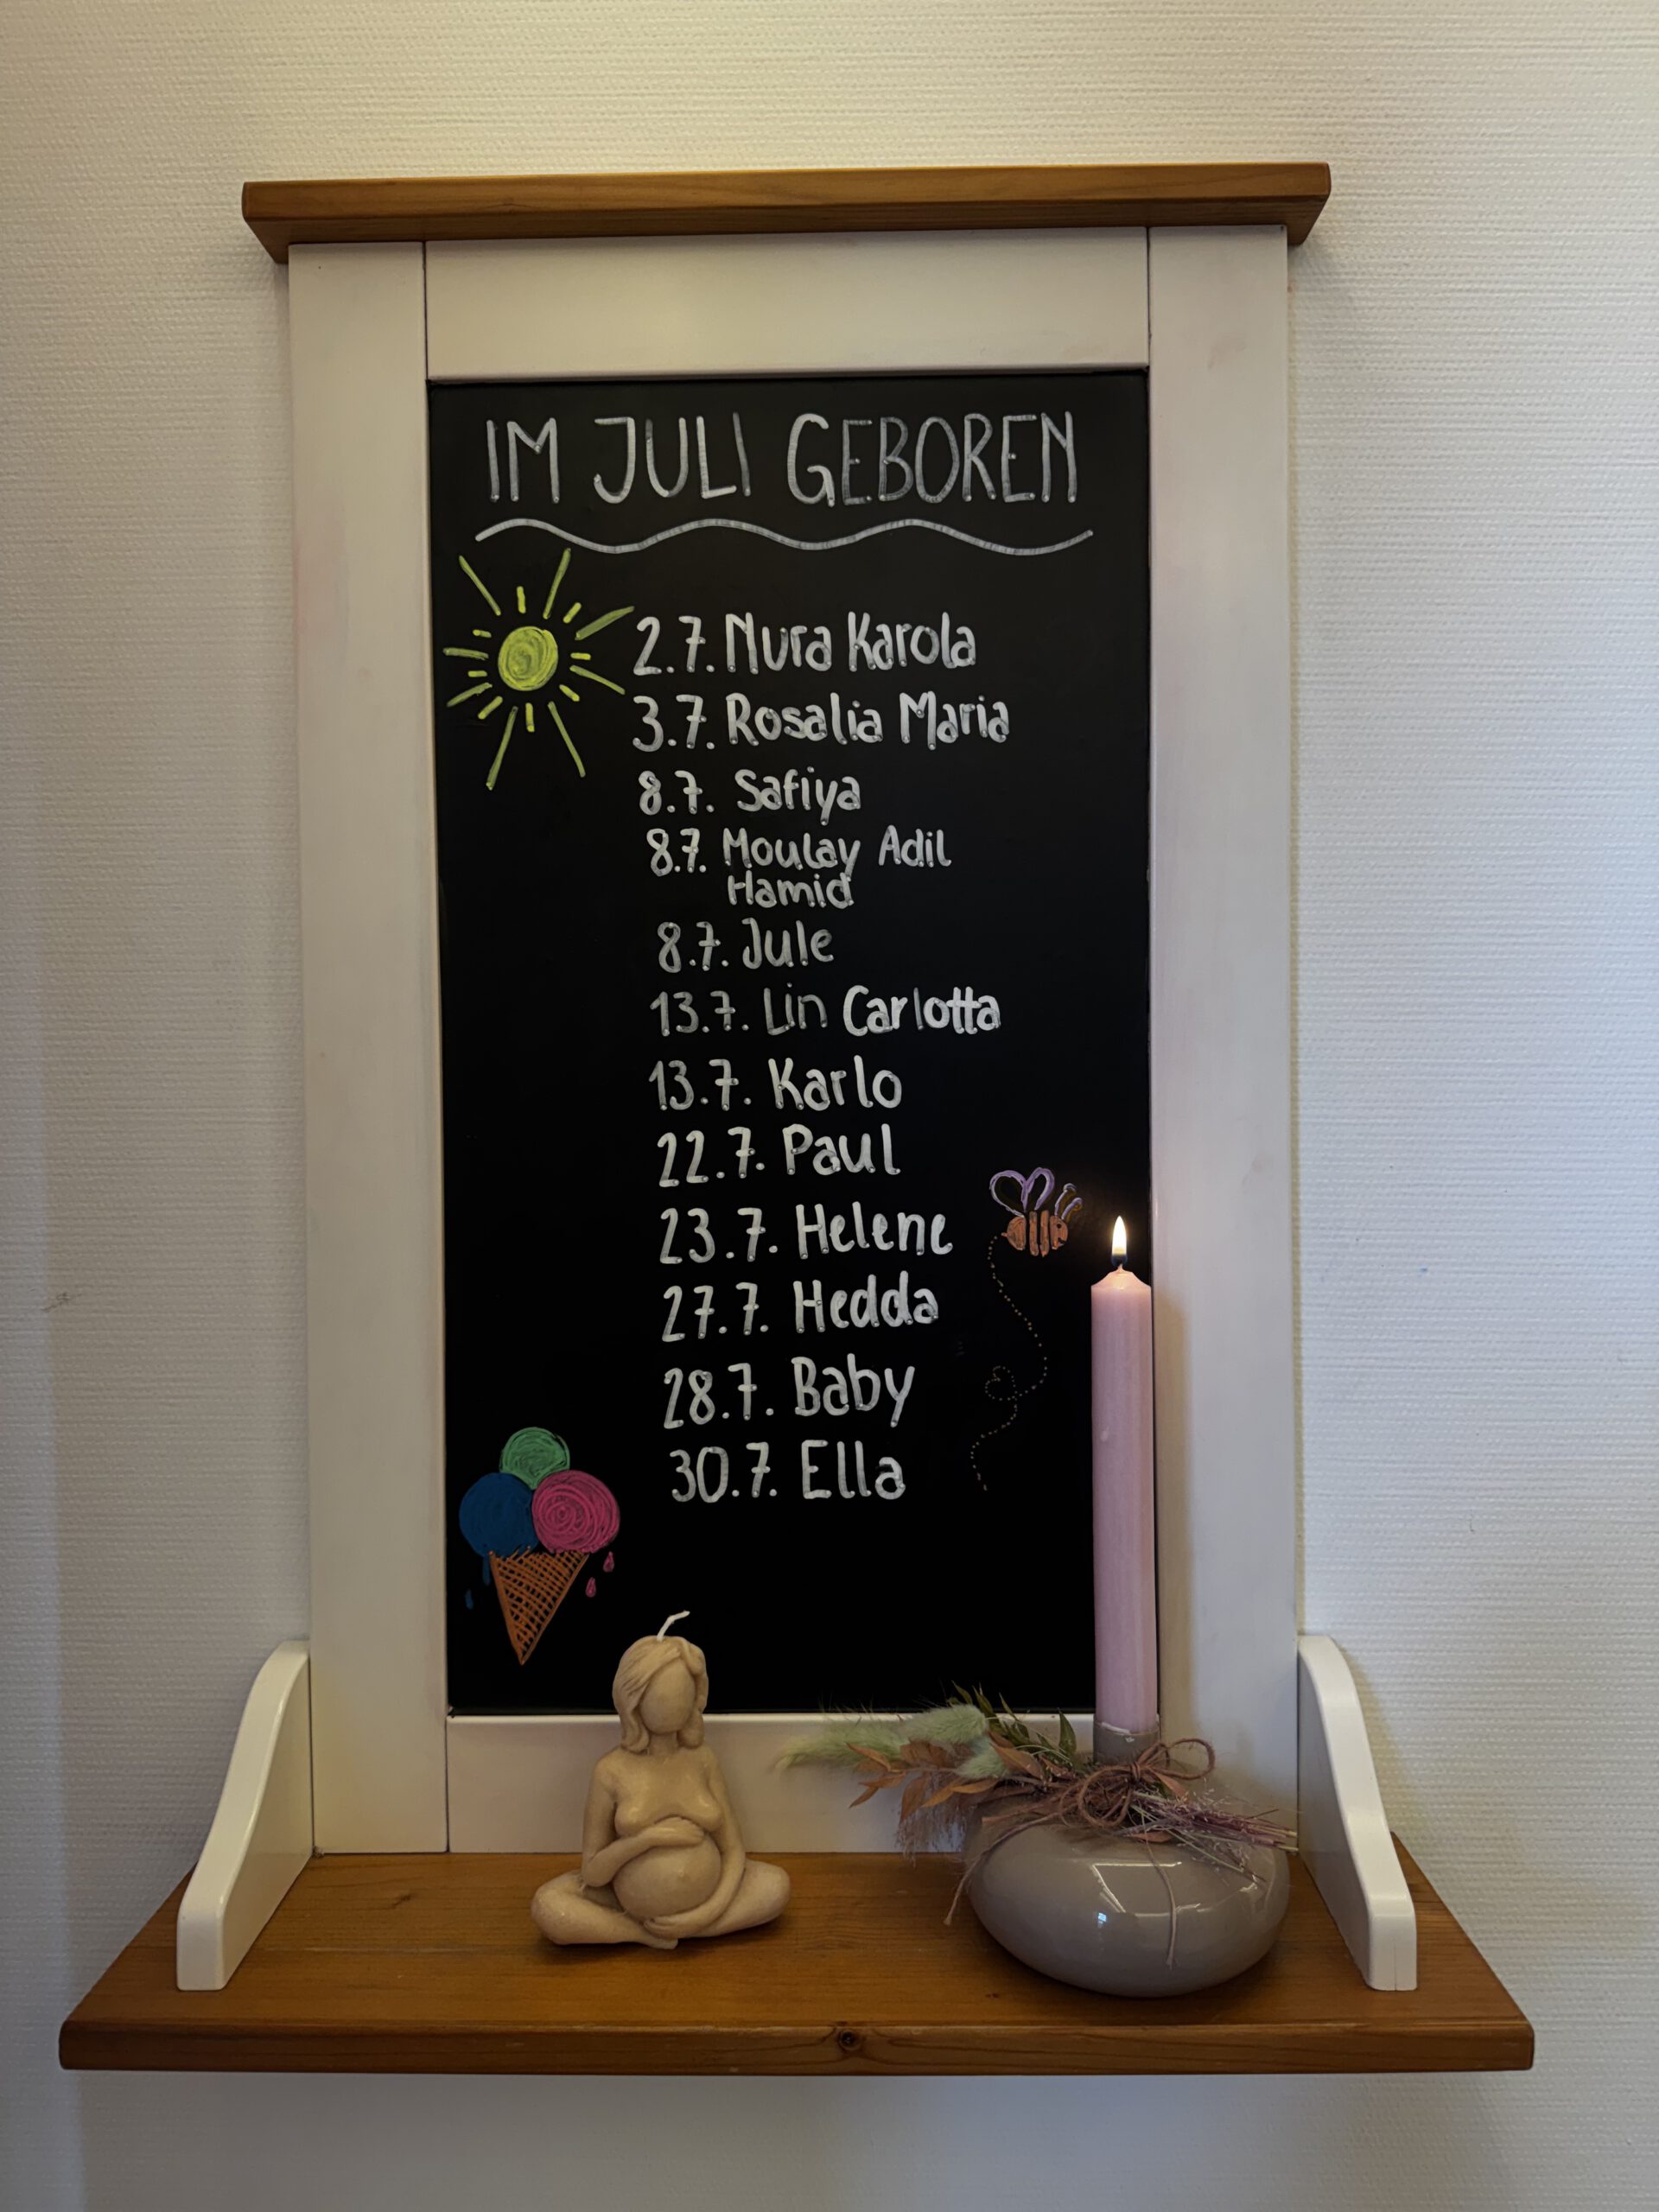 IM JULI GEBOREN
2.7. Nura Karola
3.7. Rosalia Maria
8.7. Safiya
8.7. Moulay Adil
Hamid
8.7. Jule
13.7. Lin Carlotta
13.7. Karlo
22.7. Paul
23.7. Helene
27.7. Hedda
28.7. Baby
30.7. Ella